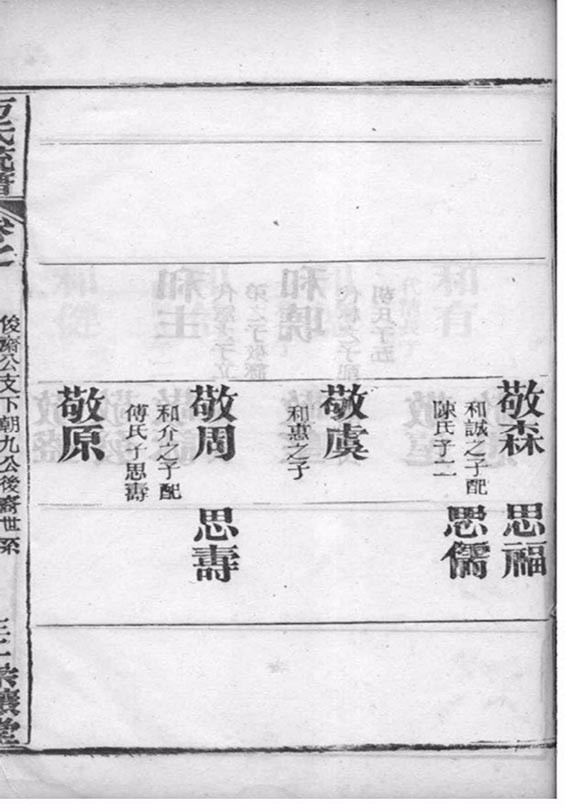 敬森
和誠之子配
陳氏子二
思福
思儒
敬虞
和惠之子
敬周
和介之子配
傅氏子思壽
思壽
敬原
俊齋公支下朝九公後裔世系